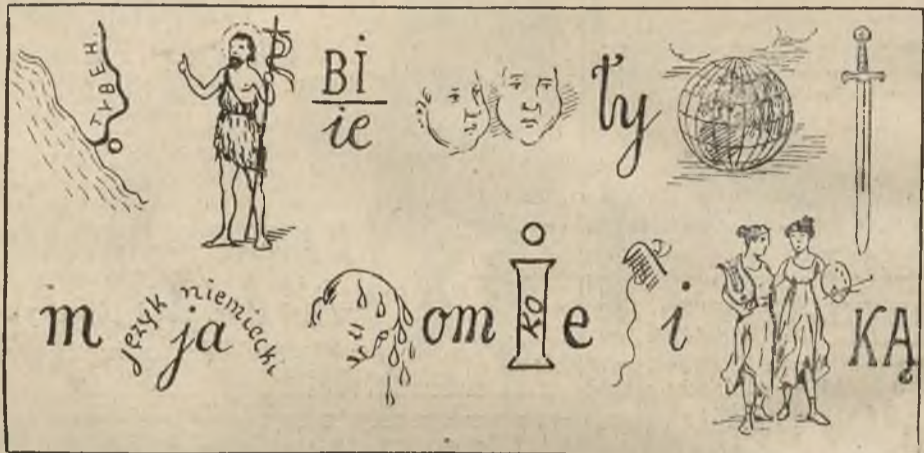 TYBER.
BI
ie
ły
m język niemiecki ja om KO e i KĄ